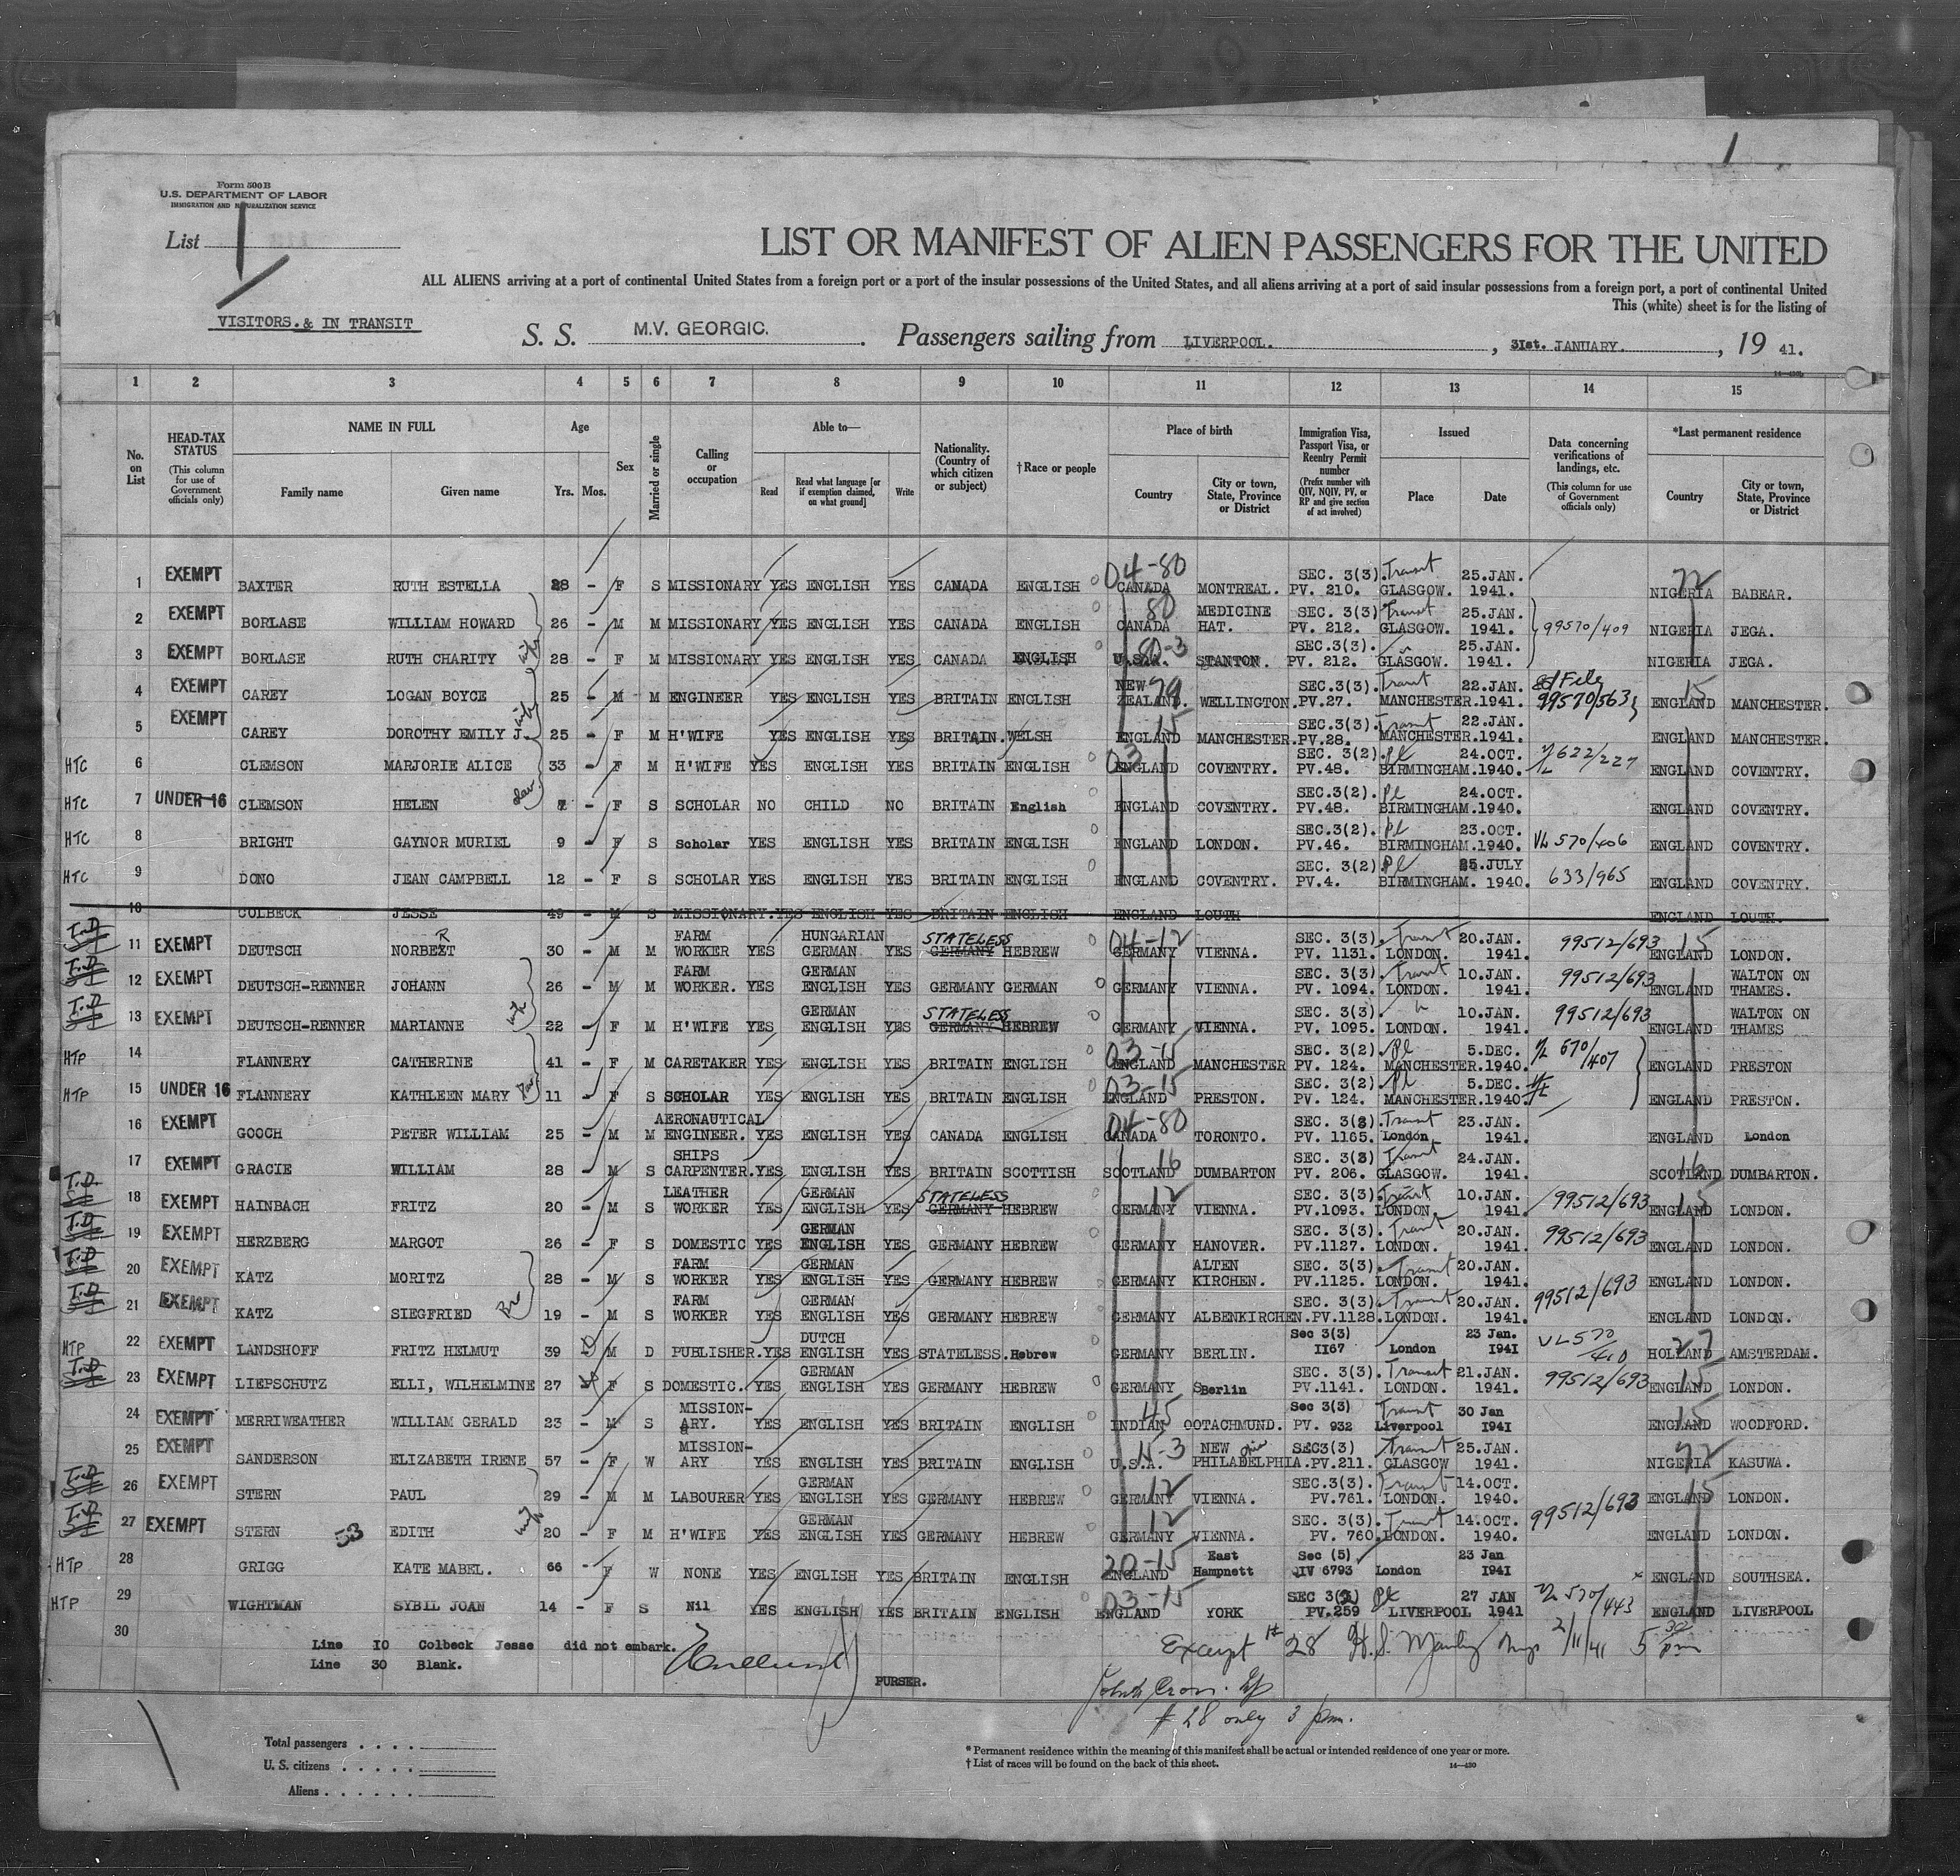 Form 500 B
U.S. DEPARTMENT OF LABOR
IMMIGRATION AND NATURALIZATION SERVICE
List 1
LIST OR MANIFEST OF ALIEN PASSENGERS FOR THE UNITED
ALL ALIENS arriving at a port of continental United States from a foreign port or a port of the insular possessions of the United States, and all aliens arriving at a port of said insular possessions from a foreign port, a port of continental United
This (white) sheet is for the listing of
VISITORS. & IN TRANSIT
S. S. M.V. GEORGIC. Passengers sailing from LIVERPOOL. , 31st. JANUARY. , 19 41.
1 2 3 4 5 6 7 8 9 10 11 12 13 14 15
No. on List
HEAD-TAX STATUS (This column for use of Government officials only)
NAME IN FULL Family name Given name
Age Yrs. Mos.
Sex
Married or single
Calling or occupation
Able to— Read Read what language [or if exemption claimed, on what ground] Write
Nationality. (Country of which citizen or subject)
†Race or people
Place of birth Country City or town, State, Province or District
Immigration Visa, Passport Visa, or Reentry Permit number (Prefix number with QIV, NQIV, PV, or RP and give section of act involved)
Issued Place Date
Data concerning verifications of landings, etc. (This column for use of Government officials only)
*Last permanent residence Country City or town, State, Province or District
1 EXEMPT BAXTER RUTH ESTELLA 28 - F S MISSIONARY YES ENGLISH YES CANADA ENGLISH 04-80 CANADA MONTREAL. SEC. 3(3). PV. 210. Transit GLASGOW. 25.JAN. 1941. NIGERIA BABEAR.
2 EXEMPT BORLASE WILLIAM HOWARD 26 - M M MISSIONARY YES ENGLISH YES CANADA ENGLISH 80 CANADA MEDICINE HAT. SEC. 3(3) PV. 212. Transit GLASGOW. 25.JAN. 1941. 99570/409 NIGERIA JEGA.
3 EXEMPT BORLASE RUTH CHARITY wife 28 - F M MISSIONARY YES ENGLISH YES CANADA ENGLISH U.S.A. STANTON. SEC.3(3). PV. 212. GLASGOW. 25.JAN. 1941. NIGERIA JEGA.
4 EXEMPT CAREY LOGAN BOYCE 25 - M M ENGINEER YES ENGLISH YES BRITAIN ENGLISH NEW ZEALAND. WELLINGTON. SEC.3(3). PV.27. Transit MANCHESTER. 22.JAN. 1941. File 99570/563 15 ENGLAND MANCHESTER.
5 EXEMPT CAREY DOROTHY EMILY J. wife 25 - F M H'WIFE YES ENGLISH YES BRITAIN. WELSH 15 ENGLAND MANCHESTER. SEC.3(3). PV.28. Transit MANCHESTER. 22.JAN. 1941. ENGLAND MANCHESTER.
HTC 6 CLEMSON MARJORIE ALICE 33 - F M H'WIFE YES ENGLISH YES BRITAIN ENGLISH 03 ENGLAND COVENTRY. SEC. 3(2). PV.48. Pl BIRMINGHAM. 24.OCT. 1940. 622/227 ENGLAND COVENTRY.
HTC 7 UNDER 16 CLEMSON HELEN 7 - F S SCHOLAR NO CHILD NO BRITAIN English ENGLAND COVENTRY. SEC.3(2). PV.48. Pl BIRMINGHAM. 24.OCT. 1940. ENGLAND COVENTRY.
HTC 8 BRIGHT GAYNOR MURIEL 9 - F S Scholar YES ENGLISH YES BRITAIN ENGLISH ENGLAND LONDON. SEC.3(2). PV.46. Pl BIRMINGHAM. 23.OCT. 1940. VL 570/406 ENGLAND COVENTRY.
HTC 9 DONO JEAN CAMPBELL 12 - F S SCHOLAR YES ENGLISH YES BRITAIN ENGLISH ENGLAND COVENTRY. SEC. 3(2) PV.4. Pl BIRMINGHAM. 25.JULY 1940. 633/965 ENGLAND COVENTRY.
10 COLBECK JESSE 49 - M S MISSIONARY. YES ENGLISH YES BRITAIN ENGLISH ENGLAND LOUTH ENGLAND LOUTH.
T.D 11 EXEMPT DEUTSCH NORBERT 30 - M M FARM WORKER YES HUNGARIAN GERMAN YES STATELESS GERMANY HEBREW 04-12 GERMANY VIENNA. SEC. 3(3). PV. 1131. Transit LONDON. 20.JAN. 1941. 99512/693 15 ENGLAND LONDON.
T.D 12 EXEMPT DEUTSCH-RENNER JOHANN 26 - M M FARM WORKER. YES GERMAN ENGLISH YES GERMANY GERMAN GERMANY VIENNA. SEC. 3(3). PV. 1094. Transit LONDON. 10.JAN. 1941. 99512/693 ENGLAND WALTON ON THAMES.
T.D 13 EXEMPT DEUTSCH-RENNER MARIANNE wife 22 - F M H'WIFE YES GERMAN ENGLISH YES STATELESS GERMANY HEBREW GERMANY VIENNA. SEC. 3(3). PV. 1095. LONDON. 10.JAN. 1941. 99512/693 ENGLAND WALTON ON THAMES
HTP 14 FLANNERY CATHERINE 41 - F M CARETAKER YES ENGLISH YES BRITAIN ENGLISH 03-15 ENGLAND MANCHESTER SEC. 3(2). PV. 124. Pl MANCHESTER. 5.DEC. 1940. 670/407 ENGLAND PRESTON
HTP 15 UNDER 16 FLANNERY KATHLEEN MARY 11 - F S SCHOLAR YES ENGLISH YES BRITAIN ENGLISH 03-15 ENGLAND PRESTON. SEC. 3(2) PV. 124. Pl MANCHESTER. 5.DEC. 1940. ENGLAND PRESTON.
16 EXEMPT GOOCH PETER WILLIAM 25 - M M AERONAUTICAL ENGINEER. YES ENGLISH YES CANADA ENGLISH 04-80 CANADA TORONTO. SEC. 3(3). PV. 1165. Transit London 23.JAN. 1941. ENGLAND London
17 EXEMPT GRACIE WILLIAM 28 - M S SHIPS CARPENTER. YES ENGLISH YES BRITAIN SCOTTISH 16 SCOTLAND DUMBARTON SEC. 3(3) PV. 206. Transit GLASGOW. 24.JAN. 1941. 16 SCOTLAND DUMBARTON.
T.D. 18 EXEMPT HAINBACH FRITZ 20 - M S LEATHER WORKER YES GERMAN ENGLISH YES STATELESS GERMANY HEBREW 12 GERMANY VIENNA. SEC. 3(3). PV.1093. Transit LONDON. 10.JAN. 1941. 99512/693 15 ENGLAND LONDON.
T.D 19 EXEMPT HERZBERG MARGOT 26 - F S DOMESTIC YES GERMAN ENGLISH YES GERMANY HEBREW GERMANY HANOVER. SEC. 3(3). PV.1127. Transit LONDON. 20.JAN. 1941. 99512/693 ENGLAND LONDON.
T.D 20 EXEMPT KATZ MORITZ 28 - M S FARM WORKER YES GERMAN ENGLISH YES GERMANY HEBREW GERMANY ALTEN KIRCHEN. SEC. 3(3). PV.1125. Transit LONDON. 20.JAN. 1941. ENGLAND LONDON.
T.D 21 EXEMPT KATZ SIEGFRIED Br 19 - M S FARM WORKER YES GERMAN ENGLISH YES GERMANY HEBREW GERMANY ALBENKIRCHEN. SEC. 3(3). PV.1128. Transit LONDON. 20.JAN. 1941. 99512/693 ENGLAND LONDON.
HTP 22 EXEMPT LANDSHOFF FRITZ HELMUT 39 M D PUBLISHER. YES DUTCH ENGLISH YES STATELESS. Hebrew GERMANY BERLIN. Sec 3(3) 1167 London 23 Jan. 1941 VL 570/410 27 HOLLAND AMSTERDAM.
T.D 23 EXEMPT LIEPSCHUTZ ELLI, WILHELMINE 27 F S DOMESTIC. YES GERMAN ENGLISH YES GERMANY HEBREW GERMANY Berlin SEC. 3(3). PV.1141. Transit LONDON. 21.JAN. 1941. 99512/693 15 ENGLAND LONDON.
24 EXEMPT MERRIWEATHER WILLIAM GERALD 23 - M S MISSION-ARY. YES ENGLISH YES BRITAIN ENGLISH 45 INDIAN OOTACHMUND. Sec 3(3) PV. 932 Transit Liverpool 30 Jan 1941 15 ENGLAND WOODFORD.
25 EXEMPT SANDERSON ELIZABETH IRENE 57 - F W MISSION-ARY YES ENGLISH YES BRITAIN ENGLISH U.S.A. NEW PHILADELPHIA. SEC3(3) PV.211. Transit GLASGOW 25.JAN. 1941. NIGERIA KASUWA.
T.D 26 EXEMPT STERN PAUL 29 - M M LABOURER YES GERMAN ENGLISH YES GERMANY HEBREW 12 GERMANY VIENNA. SEC.3(3). PV.761. Transit LONDON. 14.OCT. 1940. 15 ENGLAND LONDON.
T.D 27 EXEMPT STERN 53 EDITH wife 20 - F M H'WIFE YES GERMAN ENGLISH YES GERMANY HEBREW 12 GERMANY VIENNA. SEC. 3(3). PV. 760. Transit LONDON. 14.OCT. 1940. 99512/693 ENGLAND LONDON.
HTP 28 GRIGG KATE MABEL. 66 - F W NONE YES ENGLISH YES BRITAIN ENGLISH 20-15 ENGLAND East Hampnett Sec (5) QIV 6793 London 23 Jan 1941 ENGLAND SOUTHSEA.
HTP 29 WIGHTMAN SYBIL JOAN 14 - F S Nil YES ENGLISH YES BRITAIN ENGLISH 03-15 ENGLAND YORK SEC 3(2) PV.259 Pl LIVERPOOL 27 JAN 1941 570/443 ENGLAND LIVERPOOL
30
Line 10 Colbeck Jesse did not embark.
Line 30 Blank.
PURSER.
Except # 28 2/11/41 5 30 pm
# 28 only 3 pm.
Total passengers
U. S. citizens
Aliens
* Permanent residence within the meaning of this manifest shall be actual or intended residence of one year or more.
† List of races will be found on the back of this sheet.
14—430